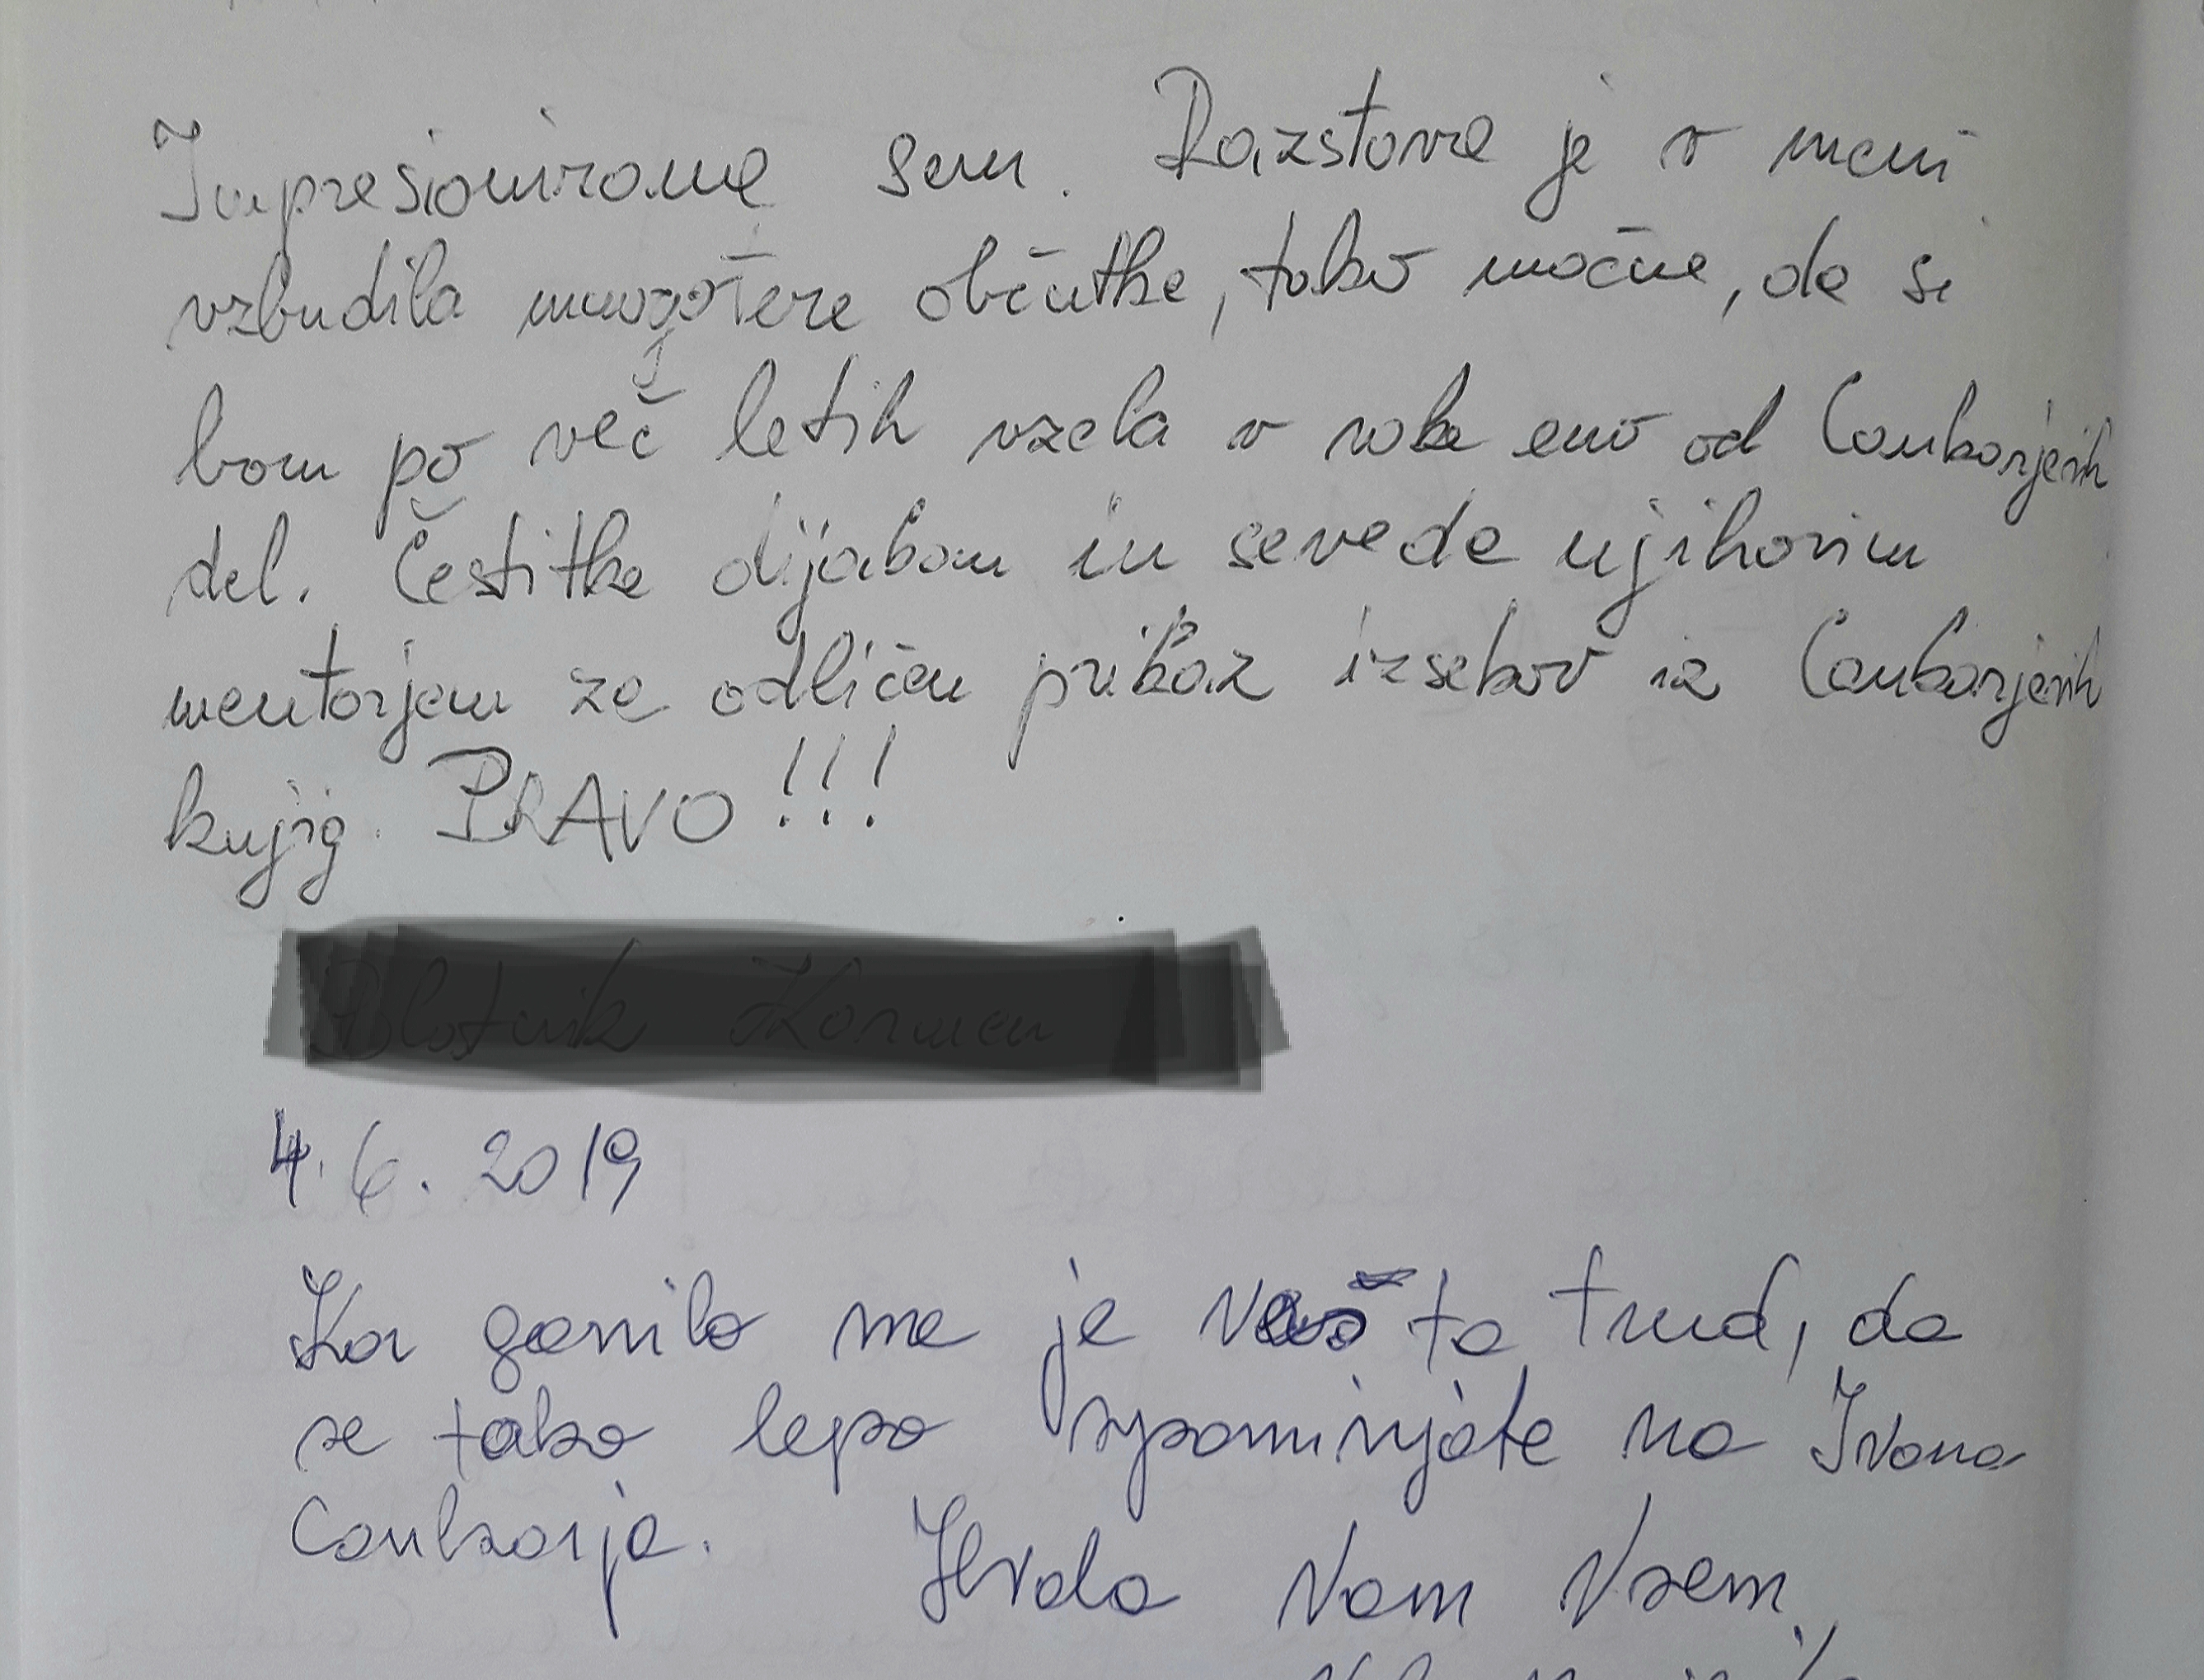 Impresionirana sem. Razstava je v meni
vzbudila mnogotere občutke, tako močne, da si
bom po več letih vzela v roke eno od Cankarjevih
del. Čestitke dijakom in seveda njihovim
mentorjem za odličen prikaz izsekov iz Cankarjevih
knjig. BRAVO!!!
4. 6. 2019
Kar ganilo me je vaš ta trud, da
se tako lepo spominjate na Ivana
Cankarja. Hvala Vam Vsem,